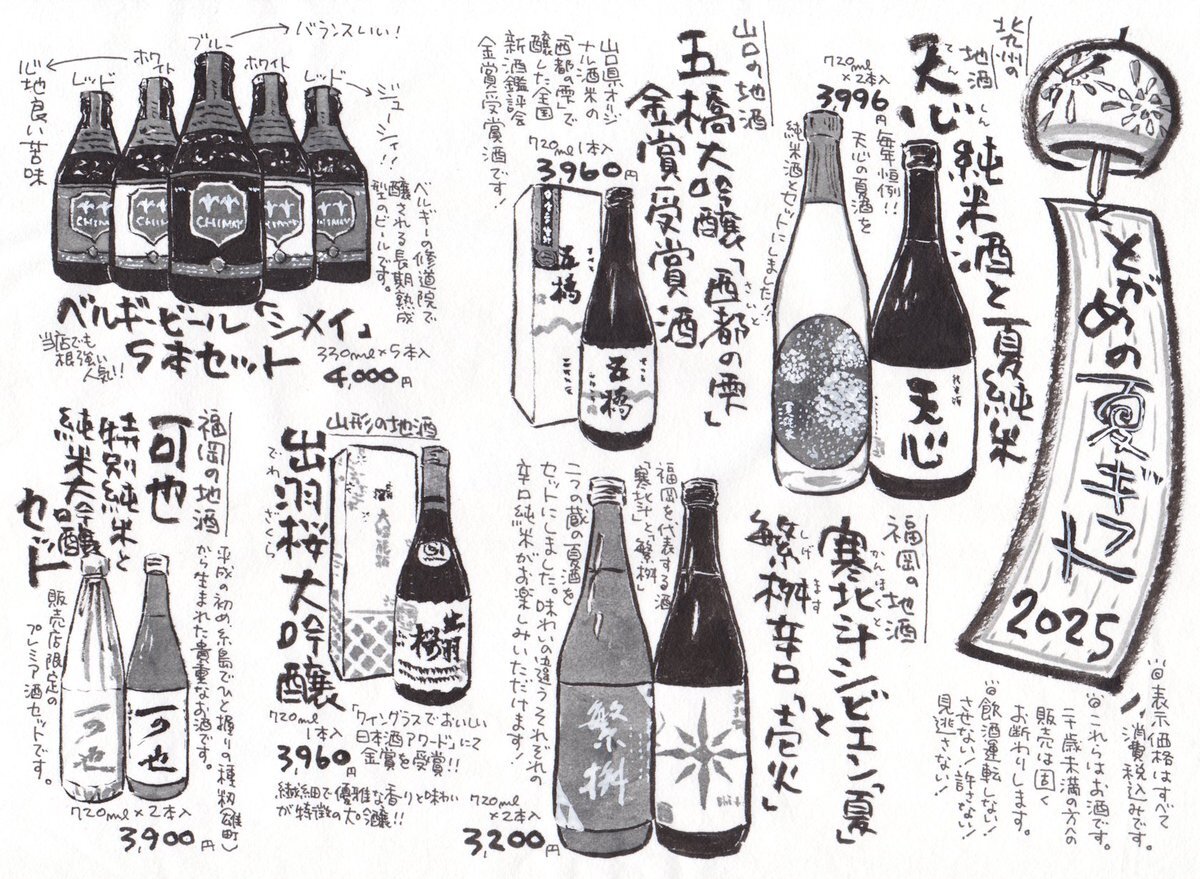 とがめの夏ギフト
2025
北九州の
地酒
天心 純米酒と夏純米
てん しん
720ml
×2本入
3996円
毎年恒例!!
天心の夏酒を
純米酒とセットにしました!!
天心
山口の地酒
五橋大吟醸「西都の雫」
さいと
金賞受賞酒
山口県オリジ
ナル酒米の
「西都の雫」で
醸した全国
新酒鑑評会
金賞受賞酒です!
720ml 1本入
3,960円
五橋
五橋
ブルー
バランスいい!
ホワイト
ホワイト
レッド
レッド
心地良い苦味
ジューシィ!!
CHIMAY
ベルギーの修道院で
醸される長期熟成
型のビールです。
ベルギービール「シメイ」
5本セット
当店でも
根強い
人気!!
330ml×5本入
4,000円
福岡の地酒
寒北斗シビエン「夏」
かんほくと
と
繁桝辛口「壱火」
しげます
福岡を代表する酒
「寒北斗」と「繁桝」
二つの蔵の夏酒を
セットにしました。味わいの違うそれぞれの
辛口純米がお楽しみいただけます!
720ml
×2本入
3,200円
繁桝
山形の地酒
出羽桜大吟醸
でわ ざくら
出羽桜
720ml
1本入
3,960円
「ワイングラスでおいしい
日本酒アワード」にて
金賞を受賞!!
繊細で優雅な香りと味わい
が特徴の大吟醸!!
福岡の地酒
可也
特別純米と
純米大吟醸
セット
平成の初め、糸島でひと握りの種籾(雄町)
から生まれた貴重なお酒です。
販売店限定の
プレミア酒セットです。
可也
可也
720ml×2本入
3,900円
表示価格はすべて
消費税込みです。
これらはお酒です。
二十歳未満の方への
販売は固く
お断わりします。
飲酒運転しない!
させない!許さない!
見逃さない!